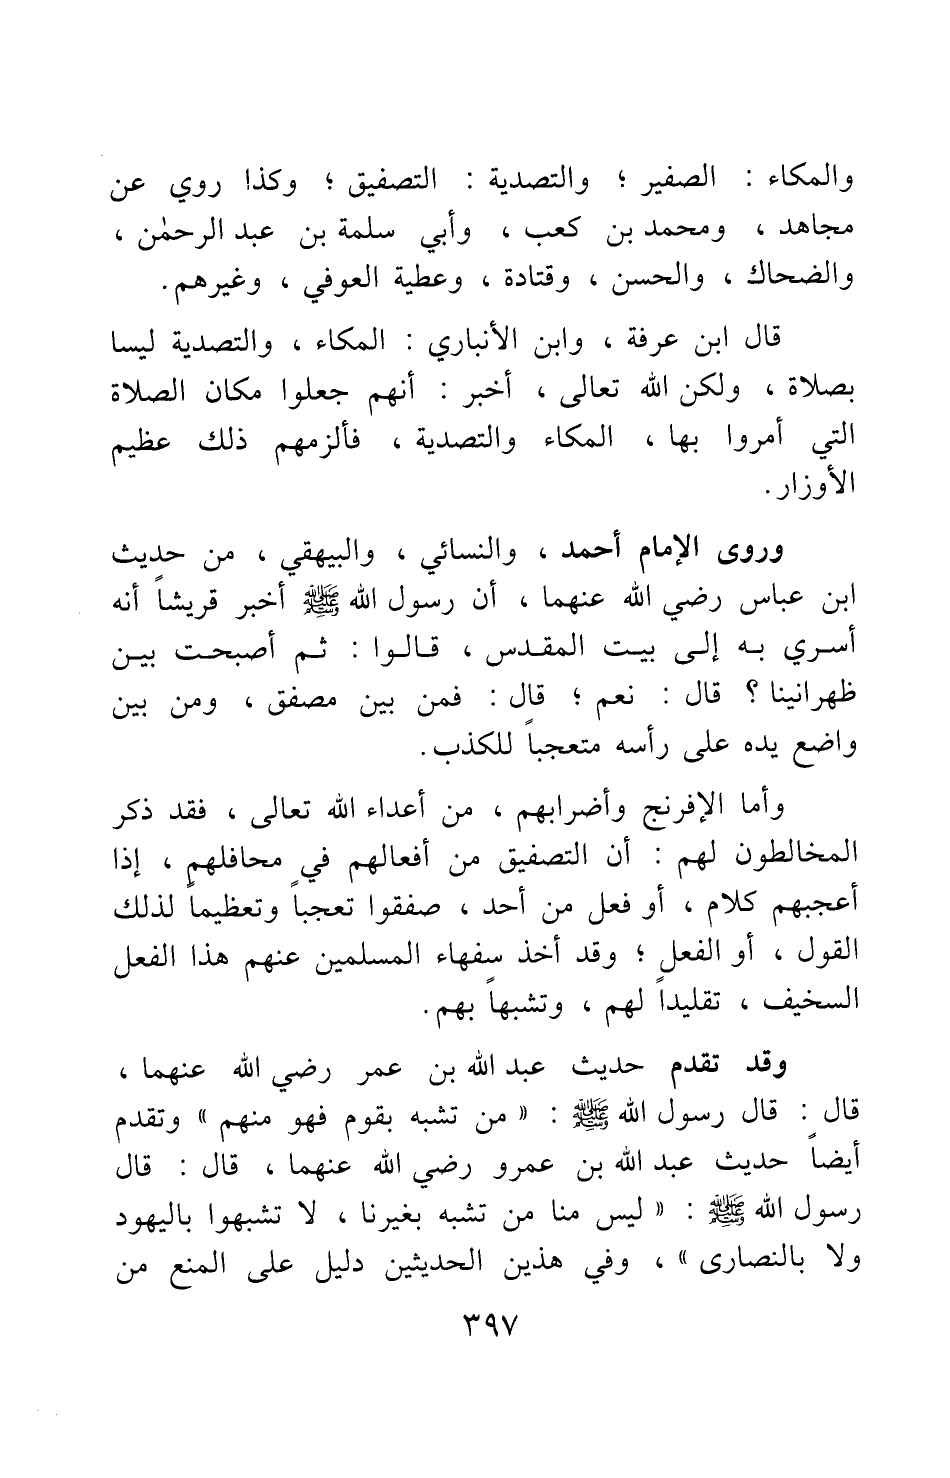 والمكاء : الصفير ؛ والتصدية : التصفيق ؛ وكذا روي عن
مجاهد ، ومحمد بن كعب ، وأبي سلمة بن عبد الرحمٰن ،
والضحاك ، والحسن ، وقتادة ، وعطية العوفي ، وغيرهم .
قال ابن عرفة ، وابن الأنباري : المكاء ، والتصدية ليسا
بصلاة ، ولكن الله تعالى ، أخبر : أنهم جعلوا مكان الصلاة
التي أمروا بها ، المكاء والتصدية ، فألزمهم ذلك عظيم
الأوزار .
وروى الإمام أحمد ، والنسائي ، والبيهقي ، من حديث
ابن عباس رضي الله عنهما ، أن رسول الله ﷺ أخبر قريشاً أنه
أسري به إلى بيت المقدس ، قالوا : ثم أصبحت بين
ظهرانينا ؟ قال : نعم ؛ قال : فمن بين مصفق ، ومن بين
واضع يده على رأسه متعجباً للكذب .
وأما الإفرنج وأضرابهم ، من أعداء الله تعالى ، فقد ذكر
المخالطون لهم : أن التصفيق من أفعالهم في محافلهم ، إذا
أعجبهم كلام ، أو فعل من أحد ، صفقوا تعجباً وتعظيماً لذلك
القول ، أو الفعل ؛ وقد أخذ سفهاء المسلمين عنهم هذا الفعل
السخيف ، تقليداً لهم ، وتشبهاً بهم .
وقد تقدم حديث عبد الله بن عمر رضي الله عنهما ،
قال : قال رسول الله ﷺ : « من تشبه بقوم فهو منهم » وتقدم
أيضاً حديث عبد الله بن عمرو رضي الله عنهما ، قال : قال
رسول الله ﷺ : « ليس منا من تشبه بغيرنا ، لا تشبهوا باليهود
ولا بالنصارى » ، وفي هذين الحديثين دليل على المنع من
٣٩٧